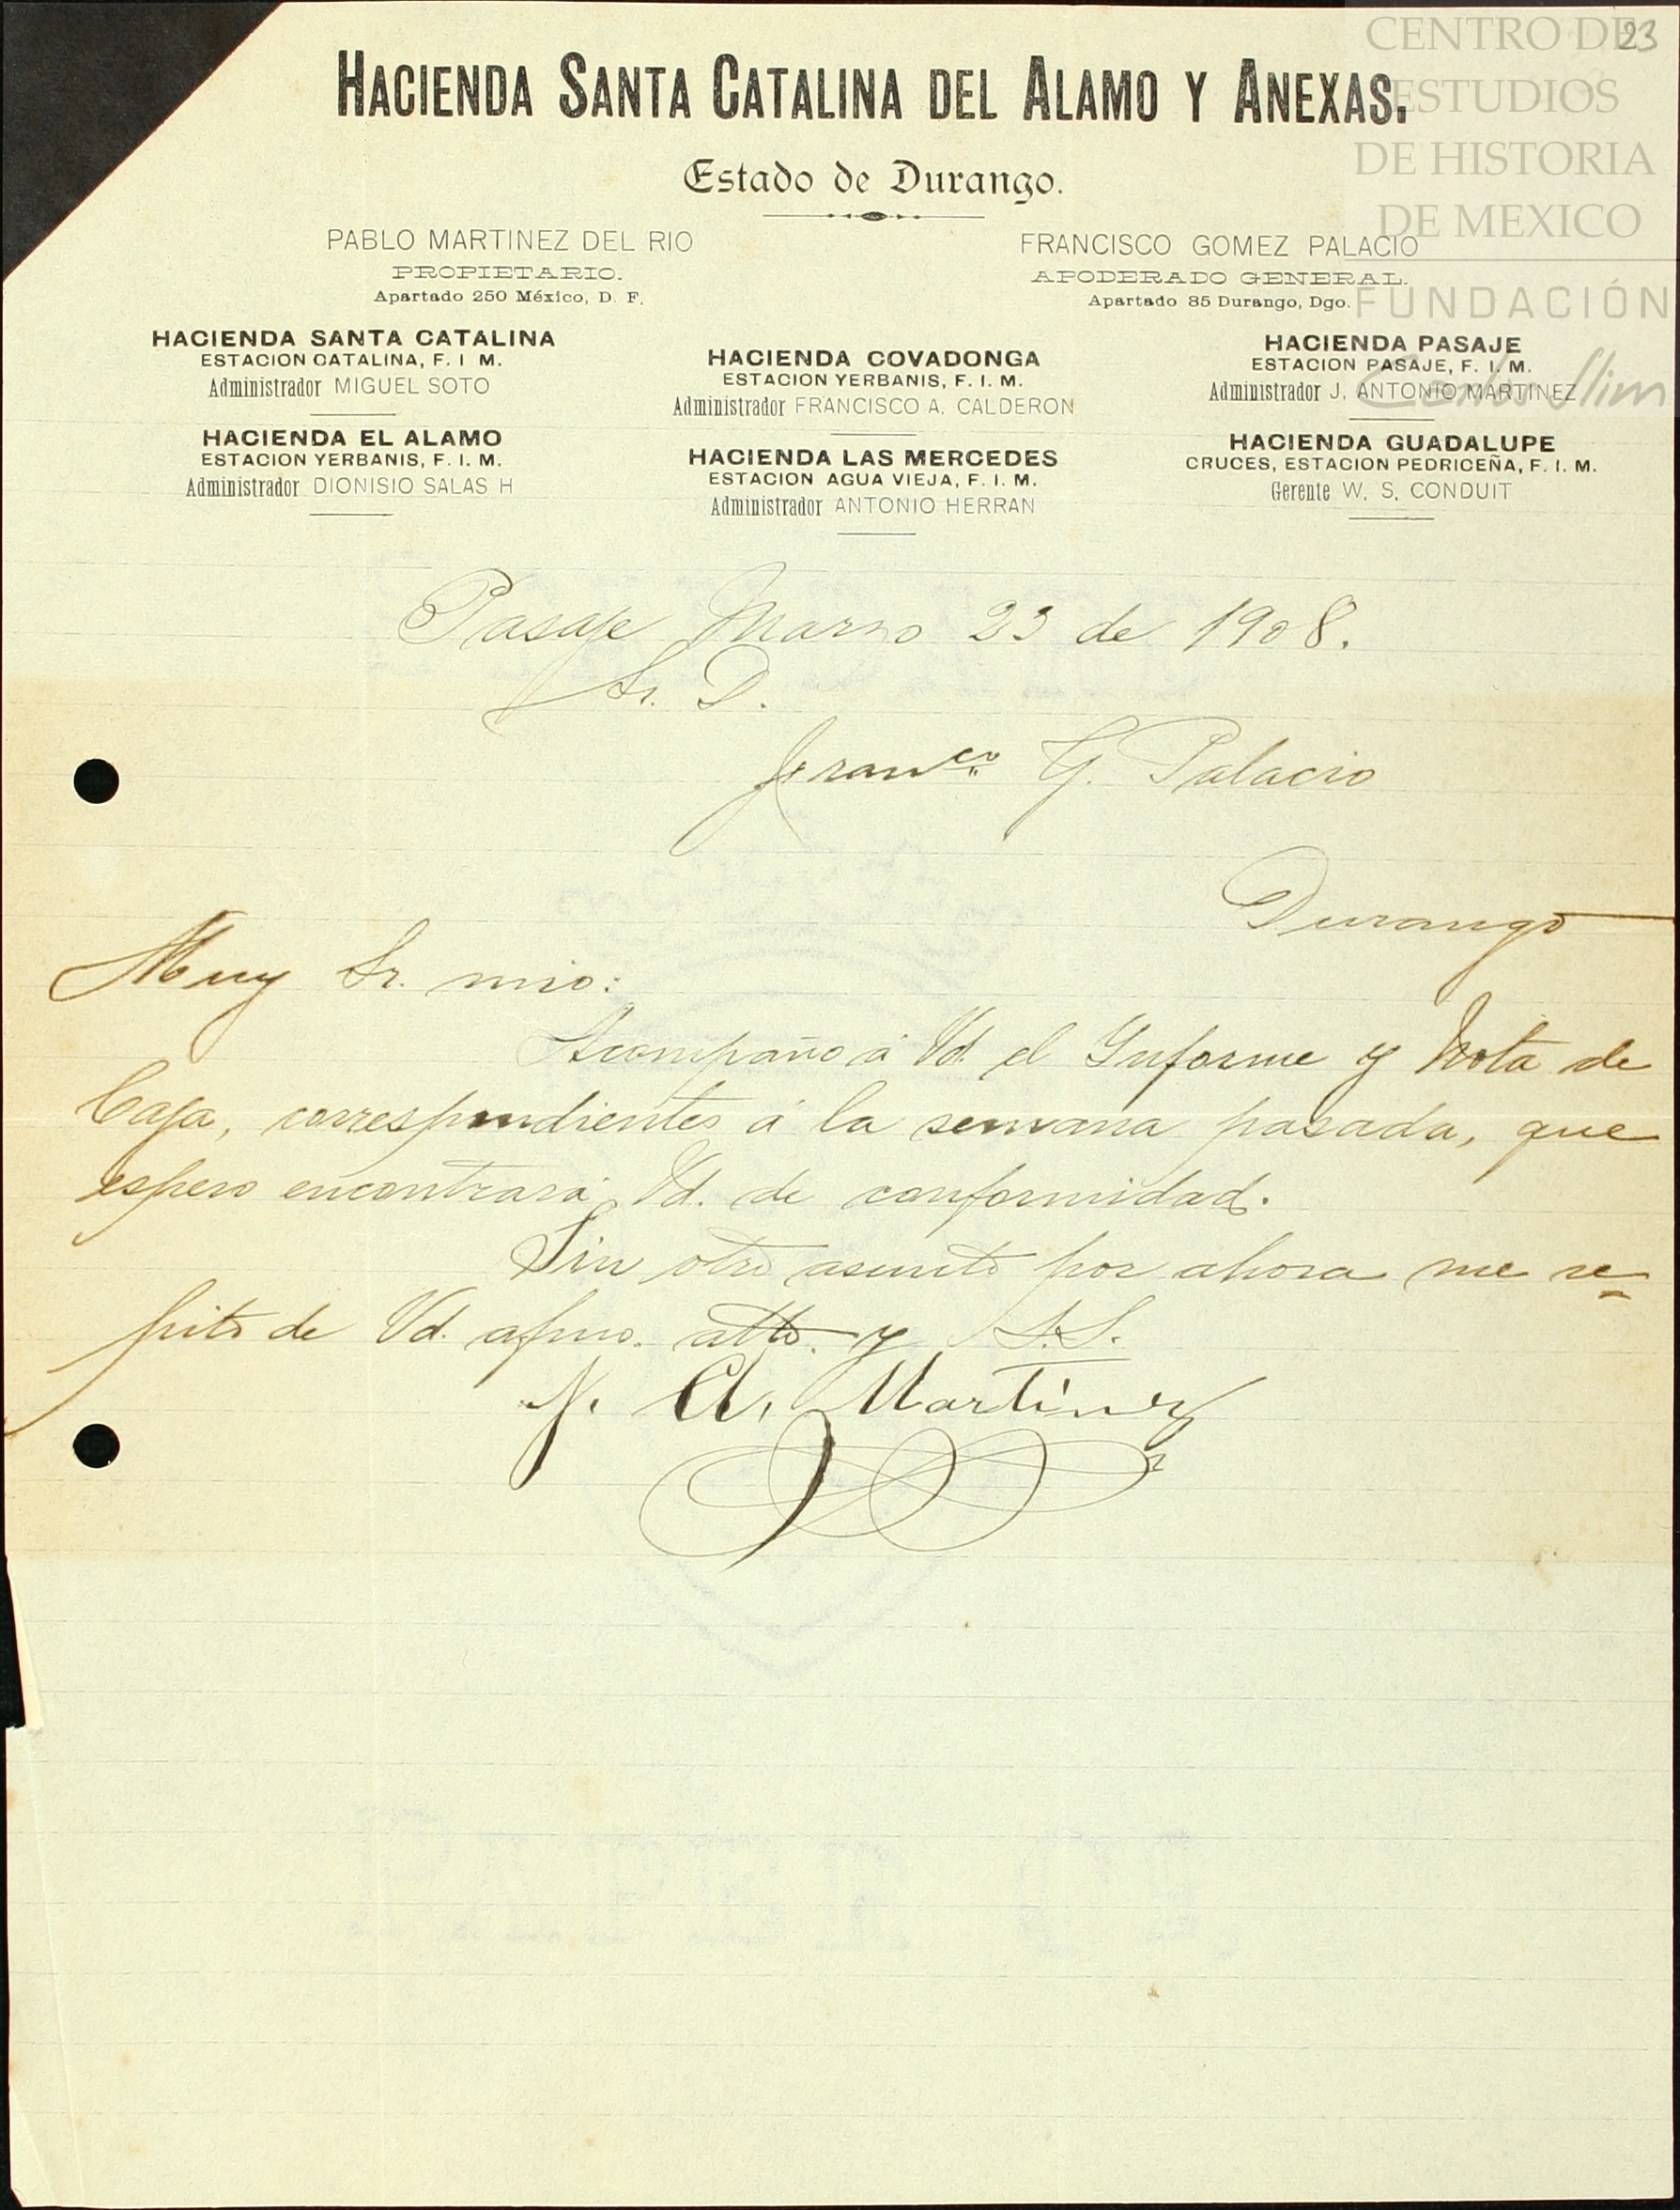 23
CENTRO DE
ESTUDIOS
DE HISTORIA
DE MEXICO
FUNDACIÓN
Carlos Slim
HACIENDA SANTA CATALINA DEL ALAMO Y ANEXAS.
Estado de Durango.
PABLO MARTINEZ DEL RIO
PROPIETARIO.
Apartado 250 México, D. F.
FRANCISCO GOMEZ PALACIO
APODERADO GENERAL.
Apartado 85 Durango, Dgo.
HACIENDA SANTA CATALINA
ESTACION CATALINA, F. I M.
Administrador MIGUEL SOTO
HACIENDA EL ALAMO
ESTACION YERBANIS, F. I. M.
Administrador DIONISIO SALAS H
HACIENDA COVADONGA
ESTACION YERBANIS, F. I. M.
Administrador FRANCISCO A. CALDERON
HACIENDA LAS MERCEDES
ESTACION AGUA VIEJA, F. I. M.
Administrador ANTONIO HERRAN
HACIENDA PASAJE
ESTACION PASAJE, F. I. M.
Administrador J. ANTONIO MARTINEZ
HACIENDA GUADALUPE
CRUCES, ESTACION PEDRICEÑA, F. I. M.
Gerente W. S. CONDUIT
Pasaje Marzo 23 de 1908.
Sr. D.
Franco. G. Palacio
Durango
Muy Sr. mio:
Acompaño á Vd. el Informe y Nota de
Caja, correspondientes á la semana pasada, que
espero encontrará Vd. de conformidad.
Sin otro asunto por ahora me re=
pito de Vd. afmo. atto. y S.S.
J. A. Martinez